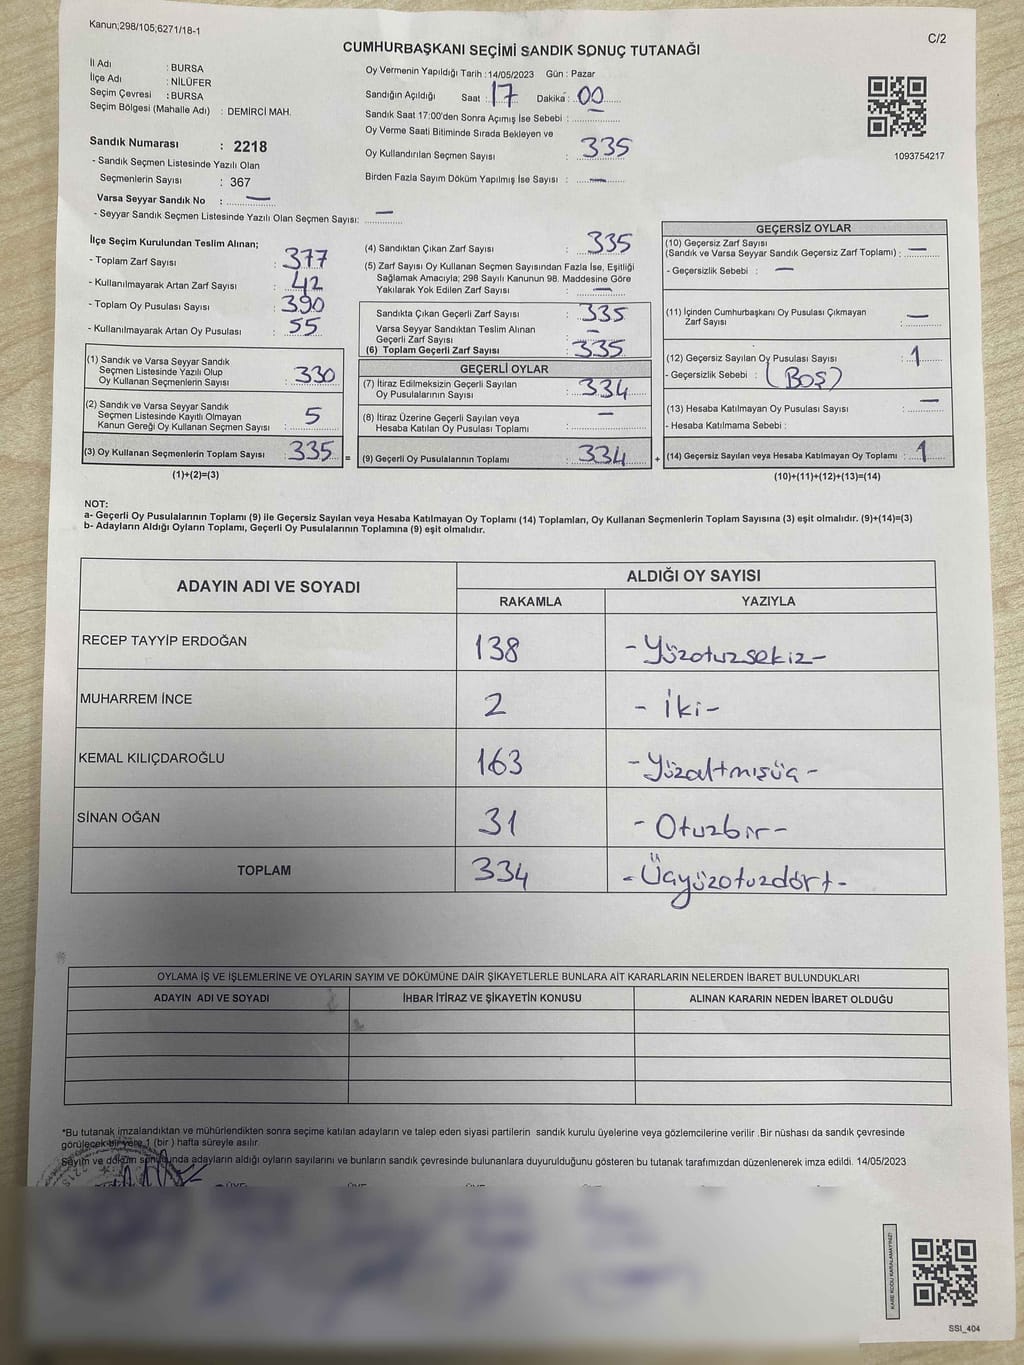 Kanun;298/105,6271/18-1
C/2
CUMHURBAŞKANI SEÇİMİ SANDIK SONUÇ TUTANAĞI
İl Adı : BURSA
İlçe Adı : NİLÜFER
Seçim Çevresi : BURSA
Seçim Bölgesi (Mahalle Adı) : DEMİRCİ MAH.
Sandık Numarası : 2218
- Sandık Seçmen Listesinde Yazılı Olan
Seçmenlerin Sayısı : 367
Varsa Seyyar Sandık No : —
- Seyyar Sandık Seçmen Listesinde Yazılı Olan Seçmen Sayısı: —
Oy Vermenin Yapıldığı Tarih : 14/05/2023 Gün : Pazar
Sandığın Açıldığı Saat : 17 Dakika : 00
Sandık Saat 17:00'den Sonra Açımış İse Sebebi :
Oy Verme Saati Bitiminde Sırada Bekleyen ve
Oy Kullandırılan Seçmen Sayısı : 335
Birden Fazla Sayım Döküm Yapılmış İse Sayısı : —
1093754217
İlçe Seçim Kurulundan Teslim Alınan;
- Toplam Zarf Sayısı : 377
- Kullanılmayarak Artan Zarf Sayısı : 42
- Toplam Oy Pusulası Sayısı : 390
- Kullanılmayarak Artan Oy Pusulası : 55
(1) Sandık ve Varsa Seyyar Sandık
Seçmen Listesinde Yazılı Olup
Oy Kullanan Seçmenlerin Sayısı : 330
(2) Sandık ve Varsa Seyyar Sandık
Seçmen Listesinde Kayıtlı Olmayan
Kanun Gereği Oy Kullanan Seçmen Sayısı : 5
(3) Oy Kullanan Seçmenlerin Toplam Sayısı : 335 =
(1)+(2)=(3)
(4) Sandıktan Çıkan Zarf Sayısı : 335
(5) Zarf Sayısı Oy Kullanan Seçmen Sayısından Fazla İse, Eşitliği
Sağlamak Amacıyla; 298 Sayılı Kanunun 98. Maddesine Göre
Yakılarak Yok Edilen Zarf Sayısı : —
Sandıkta Çıkan Geçerli Zarf Sayısı : 335
Varsa Seyyar Sandıktan Teslim Alınan
Geçerli Zarf Sayısı : —
(6) Toplam Geçerli Zarf Sayısı : 335
GEÇERLİ OYLAR
(7) İtiraz Edilmeksizin Geçerli Sayılan
Oy Pusulalarının Sayısı : 334
(8) İtiraz Üzerine Geçerli Sayılan veya
Hesaba Katılan Oy Pusulası Toplamı : —
(9) Geçerli Oy Pusulalarının Toplamı : 334 +
GEÇERSİZ OYLAR
(10) Geçersiz Zarf Sayısı
(Sandık ve Varsa Seyyar Sandık Geçersiz Zarf Toplamı) : —
- Geçersizlik Sebebi : —
(11) İçinden Cumhurbaşkanı Oy Pusulası Çıkmayan
Zarf Sayısı : —
(12) Geçersiz Sayılan Oy Pusulası Sayısı : 1
- Geçersizlik Sebebi : (BOŞ)
(13) Hesaba Katılmayan Oy Pusulası Sayısı : —
- Hesaba Katılmama Sebebi :
(14) Geçersiz Sayılan veya Hesaba Katılmayan Oy Toplamı : 1
(10)+(11)+(12)+(13)=(14)
NOT:
a- Geçerli Oy Pusulalarının Toplamı (9) ile Geçersiz Sayılan veya Hesaba Katılmayan Oy Toplamı (14) Toplamları, Oy Kullanan Seçmenlerin Toplam Sayısına (3) eşit olmalıdır. (9)+(14)=(3)
b- Adayların Aldığı Oyların Toplamı, Geçerli Oy Pusulalarının Toplamına (9) eşit olmalıdır.
ADAYIN ADI VE SOYADI
ALDIĞI OY SAYISI
RAKAMLA YAZIYLA
RECEP TAYYİP ERDOĞAN 138 - Yüzotuzsekiz -
MUHARREM İNCE 2 - İki -
KEMAL KILIÇDAROĞLU 163 - Yüzaltmışüç -
SİNAN OĞAN 31 - Otuzbir -
TOPLAM 334 - Üçyüzotuzdört -
OYLAMA İŞ VE İŞLEMLERİNE VE OYLARIN SAYIM VE DÖKÜMÜNE DAİR ŞİKAYETLERLE BUNLARA AİT KARARLARIN NELERDEN İBARET BULUNDUKLARI
ADAYIN ADI VE SOYADI İHBAR İTİRAZ VE ŞİKAYETİN KONUSU ALINAN KARARIN NEDEN İBARET OLDUĞU
*Bu tutanak imzalandıktan ve mühürlendikten sonra seçime katılan adayların ve talep eden siyasi partilerin sandık kurulu üyelerine veya gözlemcilerine verilir .Bir nüshası da sandık çevresinde
görülecek bir yere 1 (bir ) hafta süreyle asılır.
Sayım ve döküm sonucunda adayların aldığı oyların sayılarını ve bunların sandık çevresinde bulunanlara duyurulduğunu gösteren bu tutanak tarafımızdan düzenlenerek imza edildi. 14/05/2023
KARE KODU KARALAMAYINIZ!
SSI_404